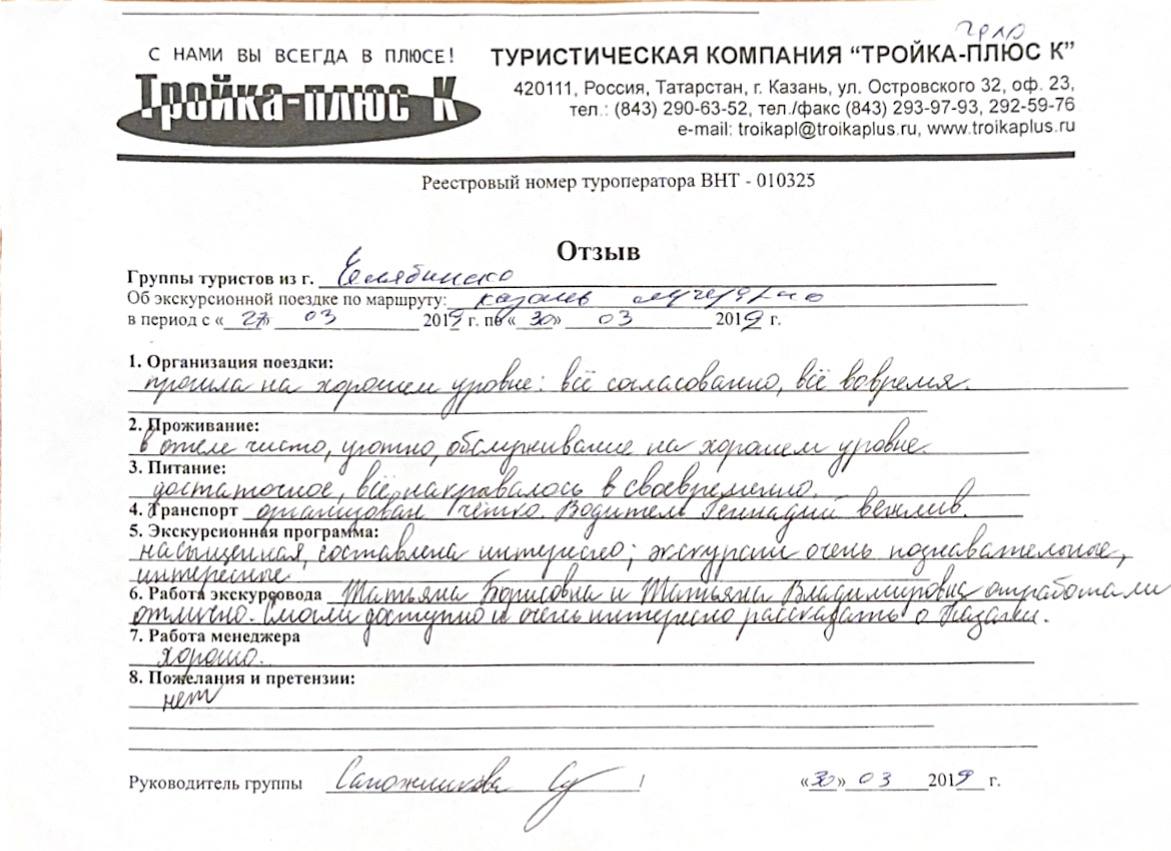 С НАМИ ВЫ ВСЕГДА В ПЛЮСЕ!
Тройка-плюс К
ТУРИСТИЧЕСКАЯ КОМПАНИЯ “ТРОЙКА-ПЛЮС К”
420111, Россия, Татарстан, г. Казань, ул. Островского 32, оф. 23,
тел.: (843) 290-63-52, тел./факс (843) 293-97-93, 292-59-76
e-mail: troikapl@troikaplus.ru, www.troikaplus.ru
Реестровый номер туроператора ВНТ - 010325
Отзыв
Группы туристов из г. Челябинска
Об экскурсионной поездке по маршруту:
в период с « 27» 03 2019 г. по « 30» 03 2019 г.
1. Организация поездки:
прошла на хорошем уровне: всё согласованно, всё вовремя.
2. Проживание:
в отеле чисто, уютно, обслуживание на хорошем уровне.
3. Питание:
достаточное, всё накрывалось в своевременно.
4. Транспорт организован чётко. Водитель Геннадий вежлив.
5. Экскурсионная программа:
насыщенная, составлена интересно; экскурсии очень познавательные,
интересные
6. Работа экскурсовода Татьяна Борисовна и Татьяна Владимировна отработали
отлично. Смогли доступно и очень интересно рассказать о Казани.
7. Работа менеджера
хорошо.
8. Пожелания и претензии:
нет
Руководитель группы Сапожникова
«30» 03 2019 г.